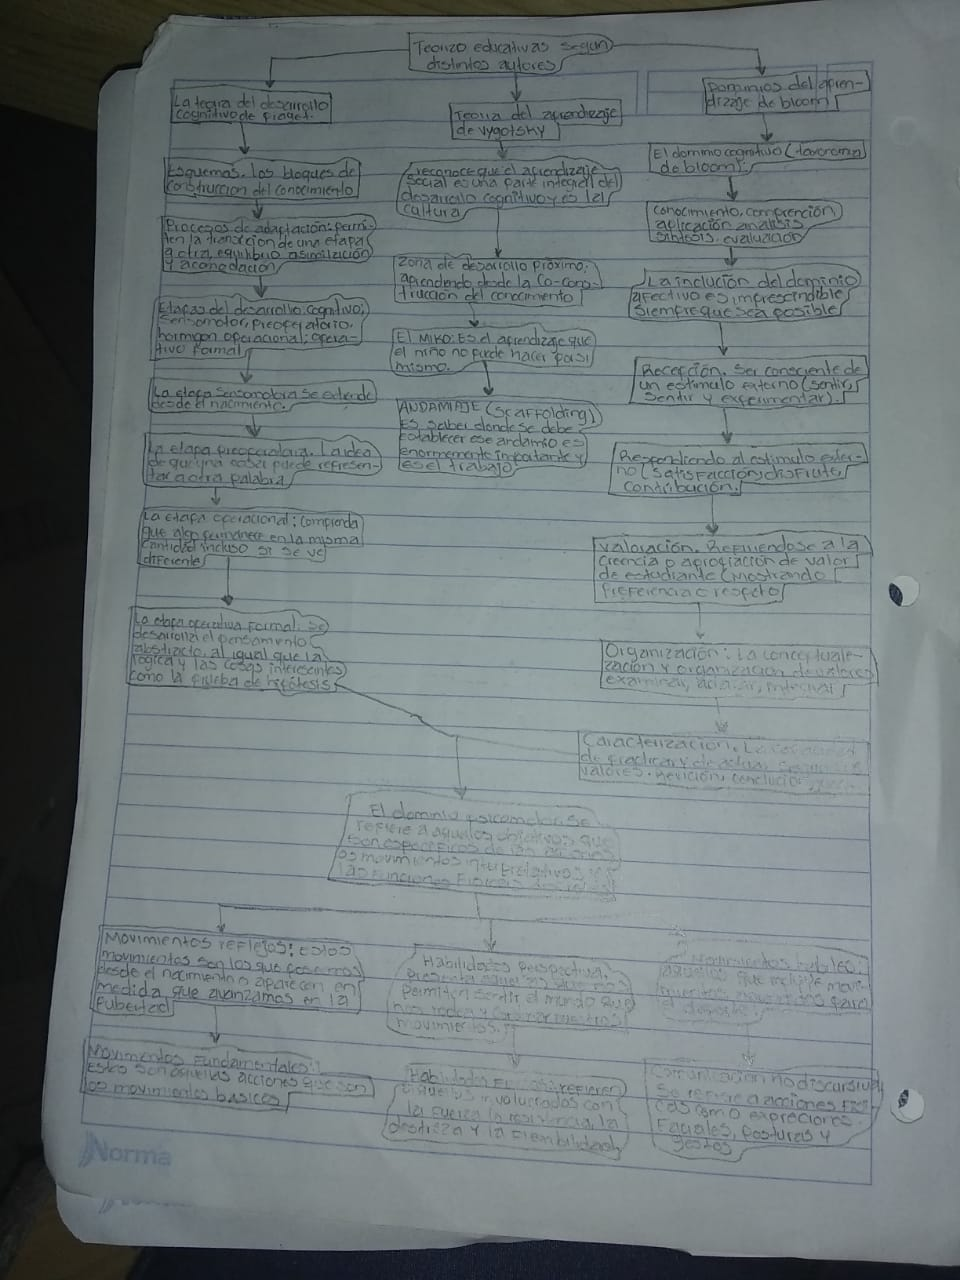 Teorizo educativas según
distintos autores
La teoria del desarrollo
cognitivo de piaget.
Esquemas. Los bloques de
construccion del conocimiento
Procesos de adaptación: permi-
ten la transicion de una etapa
a otra, equilibrio asimilización
y acomodación
Etapas del desarrollo cognitivo;
sensomotor, preoperatorio,
hormigon operacional; opera-
tivo formal
La etapa sensomotora se extiende
desde el nacimiento.
La etapa preoperatoria. La idea
de que una cosa puede represen-
tar a otra palabra
La etapa operacional; comprenda
que algo permanece en la misma
cantidad incluso si se ve
diferente
La etapa operativa formal. Se
desarrolla el pensamiento
abstracto, al igual que la
logica y las cosas interesantes
como la prueba de hipótesis
Teoria del aprendizaje
de vygotsky
reconoce que el aprendizaje
social es una parte integral del
desarrollo cognitivo y es la
cultura
Zona de desarrollo próximo:
aprendiendo desde la co-cons-
trucción del conocimiento
El MIKO: Es el aprendizaje que
el niño no puede hacer por si
mismo.
ANDAMIAJE (scaffolding)
Es saber donde se debe
establecer ese andamio es
enormemente importante y
es el trabajo
Dominios del apren-
dizaje de bloom
El dominio cognitivo (taxonomia
de bloom):
Conocimiento, comprención
aplicación analisis
sintesis, evaluación
La inclución del dominio
afectivo es imprescindible
siempre que sea posible
Recepción. Ser consciente de
un estimulo externo (sentir,
sentir y experimentar).
Respondiendo al estimulo exter-
no (satisfacción, disfrute,
contribución.
Valoración. Refiriendose a la
creencia o apropiación de valor
de estudiante (mostrando
preferencia o respeto
Organización: La conceptuale-
zación y organización de valores
examinar, aclarar, integrar
Caracterización. La capacidad
de practicar y de actuar
valores. Revición, conclución
El dominio psicomotor se
refiere a aquellos objetivos que
son especificos de las
los movimientos interpretativos y
las funciones fisicas
Movimientos reflejos: Estos
movimientos son los que poseemos
desde el nacimiento o aparecen en
medida que avanzamos en la
Pubertad
Habilidades perspectiva:
que nos
permiten sentir el mundo que
nos rodea y coordinar nuestros
movimientos.
Movimientos habiles:
aquellos que incluye movi-
mientos para
el deporte
Movimientos Fundamentales:
Estos son aquellas acciones que son
los movimientos basicos
Habilidades refieren
a aquellos involucrados con
la fuerza la resistencia, la
destreza y la
Comunicación no discursiva
Se refiere a acciones Fisi-
cas como expreciones
Faciales, posturas y
gestos
Norma